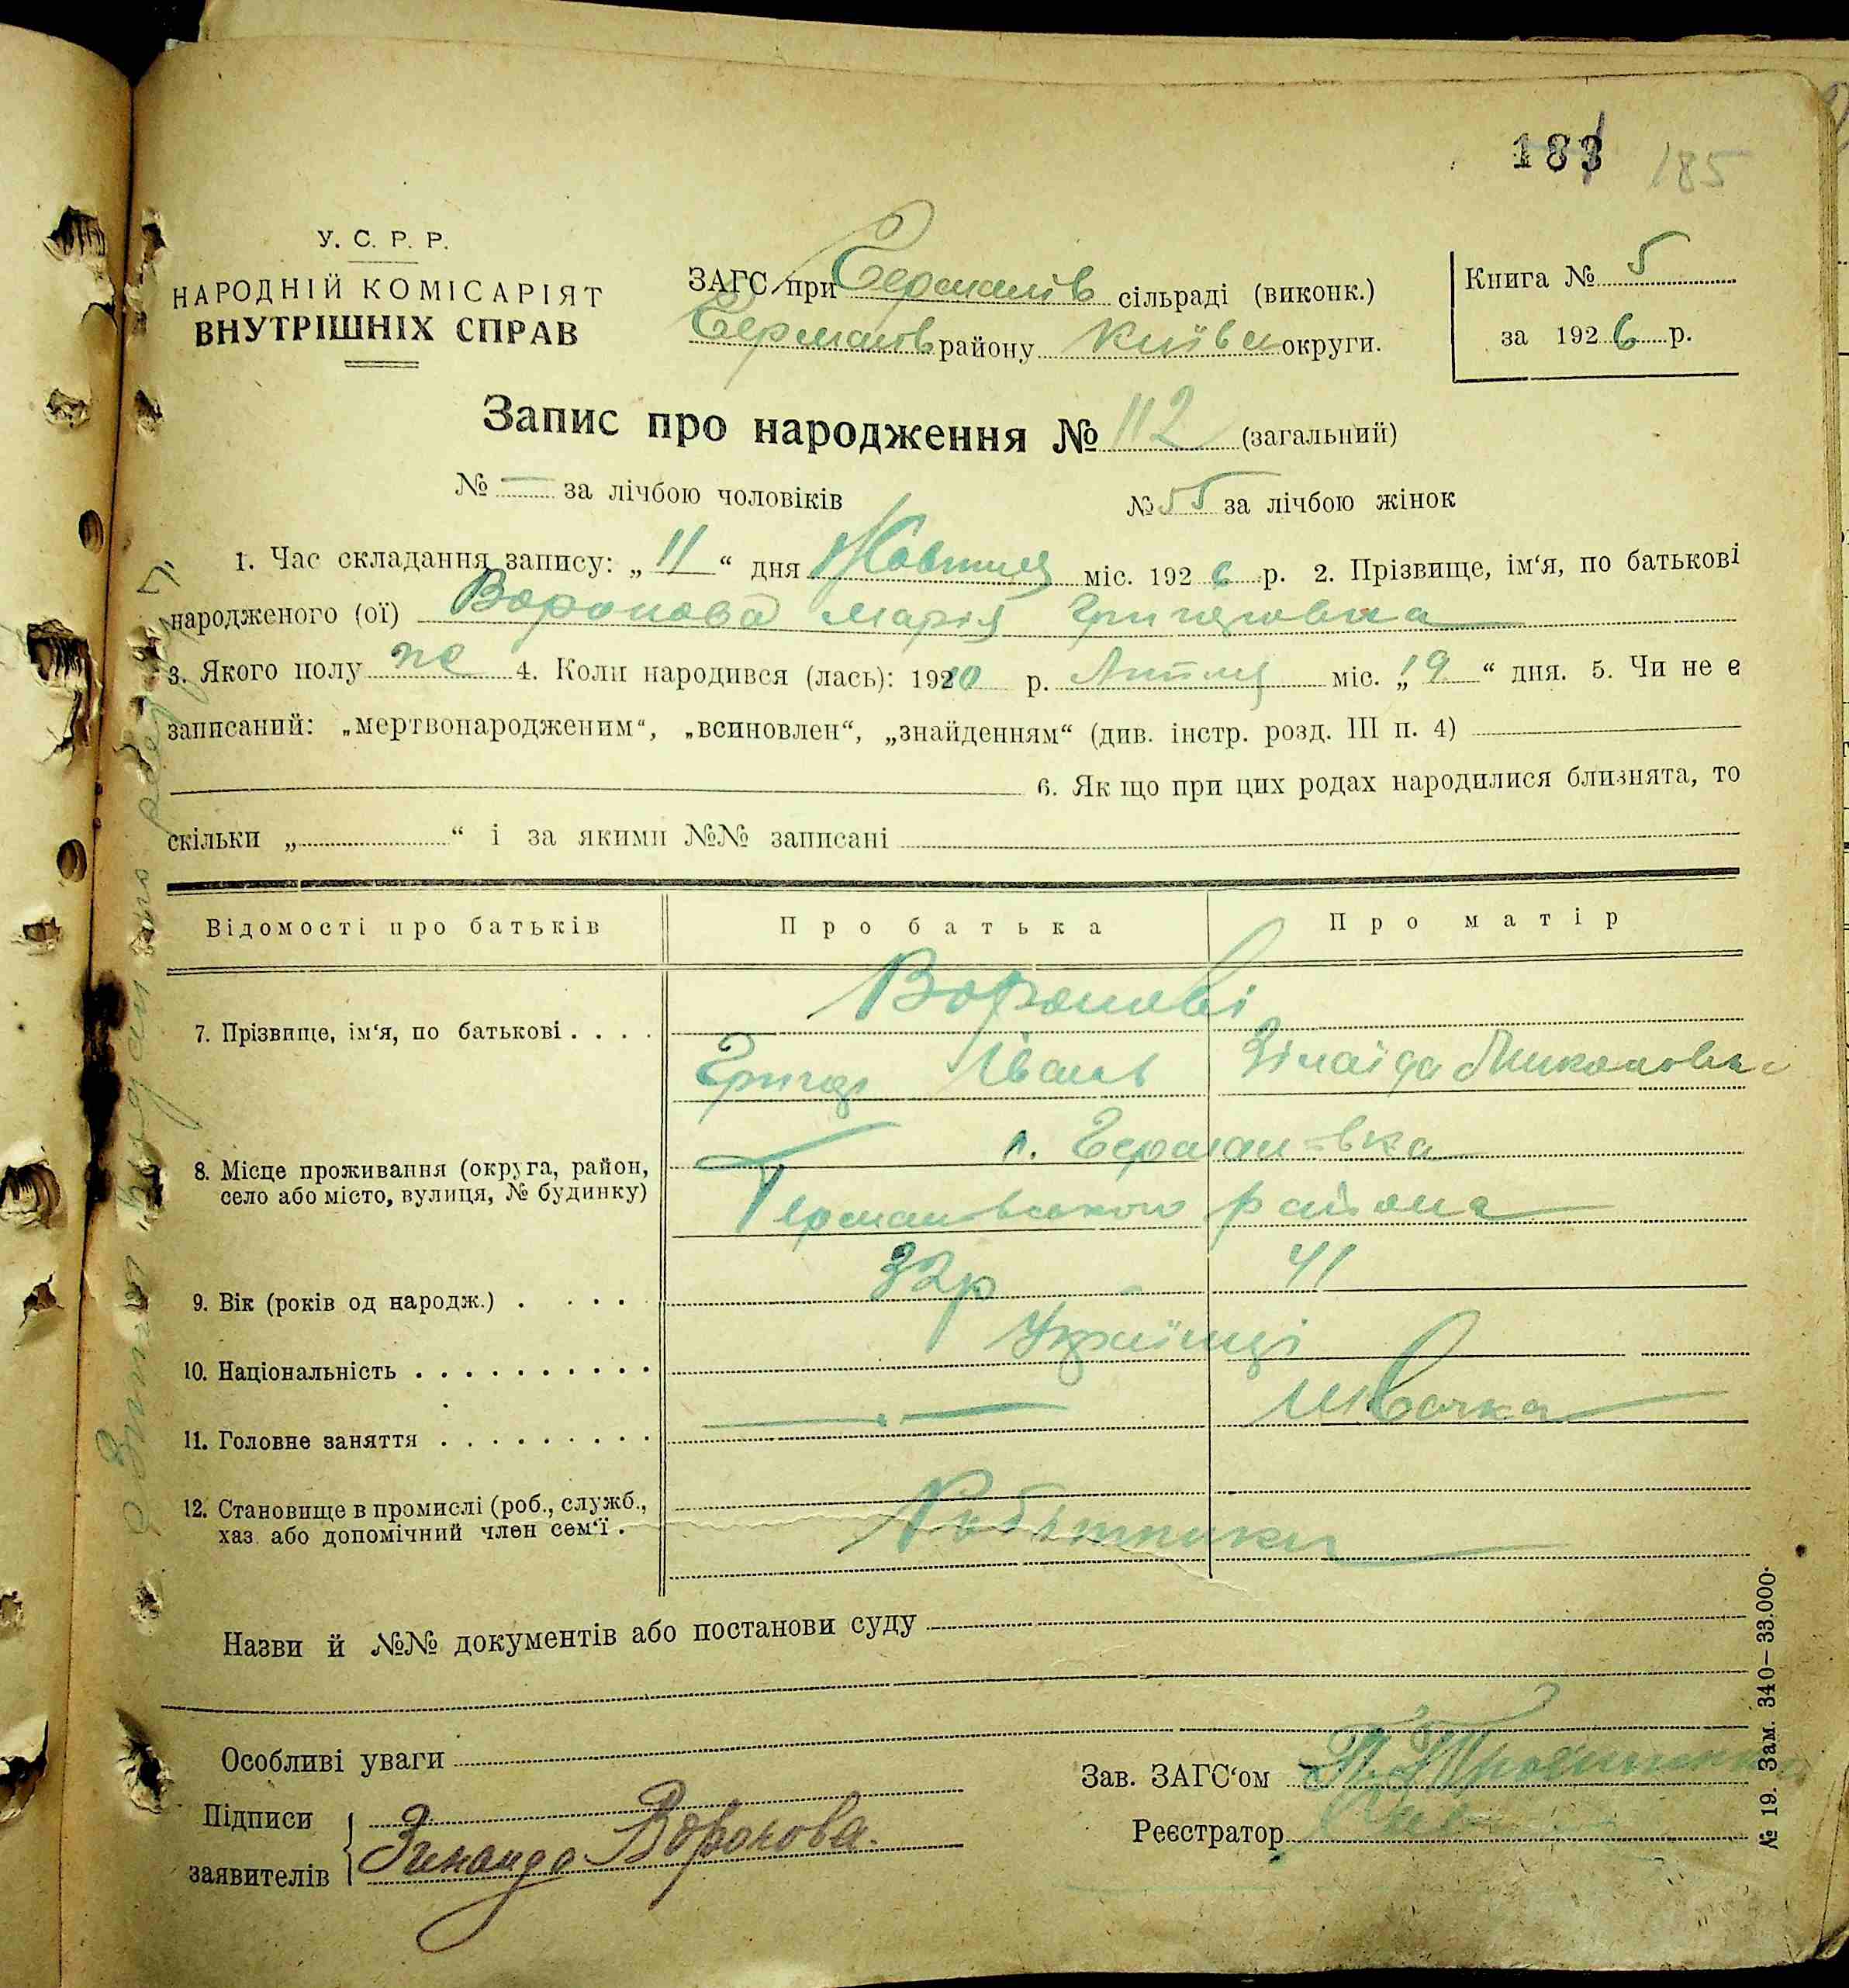 183 185
У. С. Р. Р.
НАРОДНІЙ КОМІСАРІЯТ
ВНУТРІШНІХ СПРАВ
ЗАГС при Германів сільраді (виконк.)
Германів району Київськ округи.
Книга № 5
за 1926 р.
Запис про народження № 112 (загальний)
№ — за лічбою чоловіків № 55 за лічбою жінок
1. Час складання запису: „ 11 “ дня Жовтня міс. 1926 р. 2. Прізвище, ім'я, по батькові
народженого (ої) Воронова Марія Григоровна
3. Якого полу 4. Коли народився (лась): 1920 р. Липня міс. „ 19 “ дня. 5. Чи не є
записаний: „мертвонародженим“, „всиновлен“, „знайденням“ (див. інстр. розд. III п. 4)
6. Як що при цих родах народилися близнята, то
скільки „ “ і за якими №№ записані
Відомості про батьків Про батька Про матір
Воронові
7. Прізвище, ім'я, по батькові . . . .
Григор Іванів Зінаїда Миколовна
с. Германовка
8. Місце проживання (округа, район,
село або місто, вулиця, № будинку)
Германовського района
9. Вік (років од народж.) . . . . 32р 41
10. Національність . . . . . . . . . . Українці
11. Головне заняття . . . . . . . . . — Швачка
12. Становище в промислі (роб., служб.,
хаз. або допомічний член сем'ї .
Робітники
Назви й №№ документів або постанови суду
Особливі уваги
Зав. ЗАГС'ом
Підписи
заявителів
Зинаида Воронова.
Реєстратор
№ 19. Зам. 340—33.000.